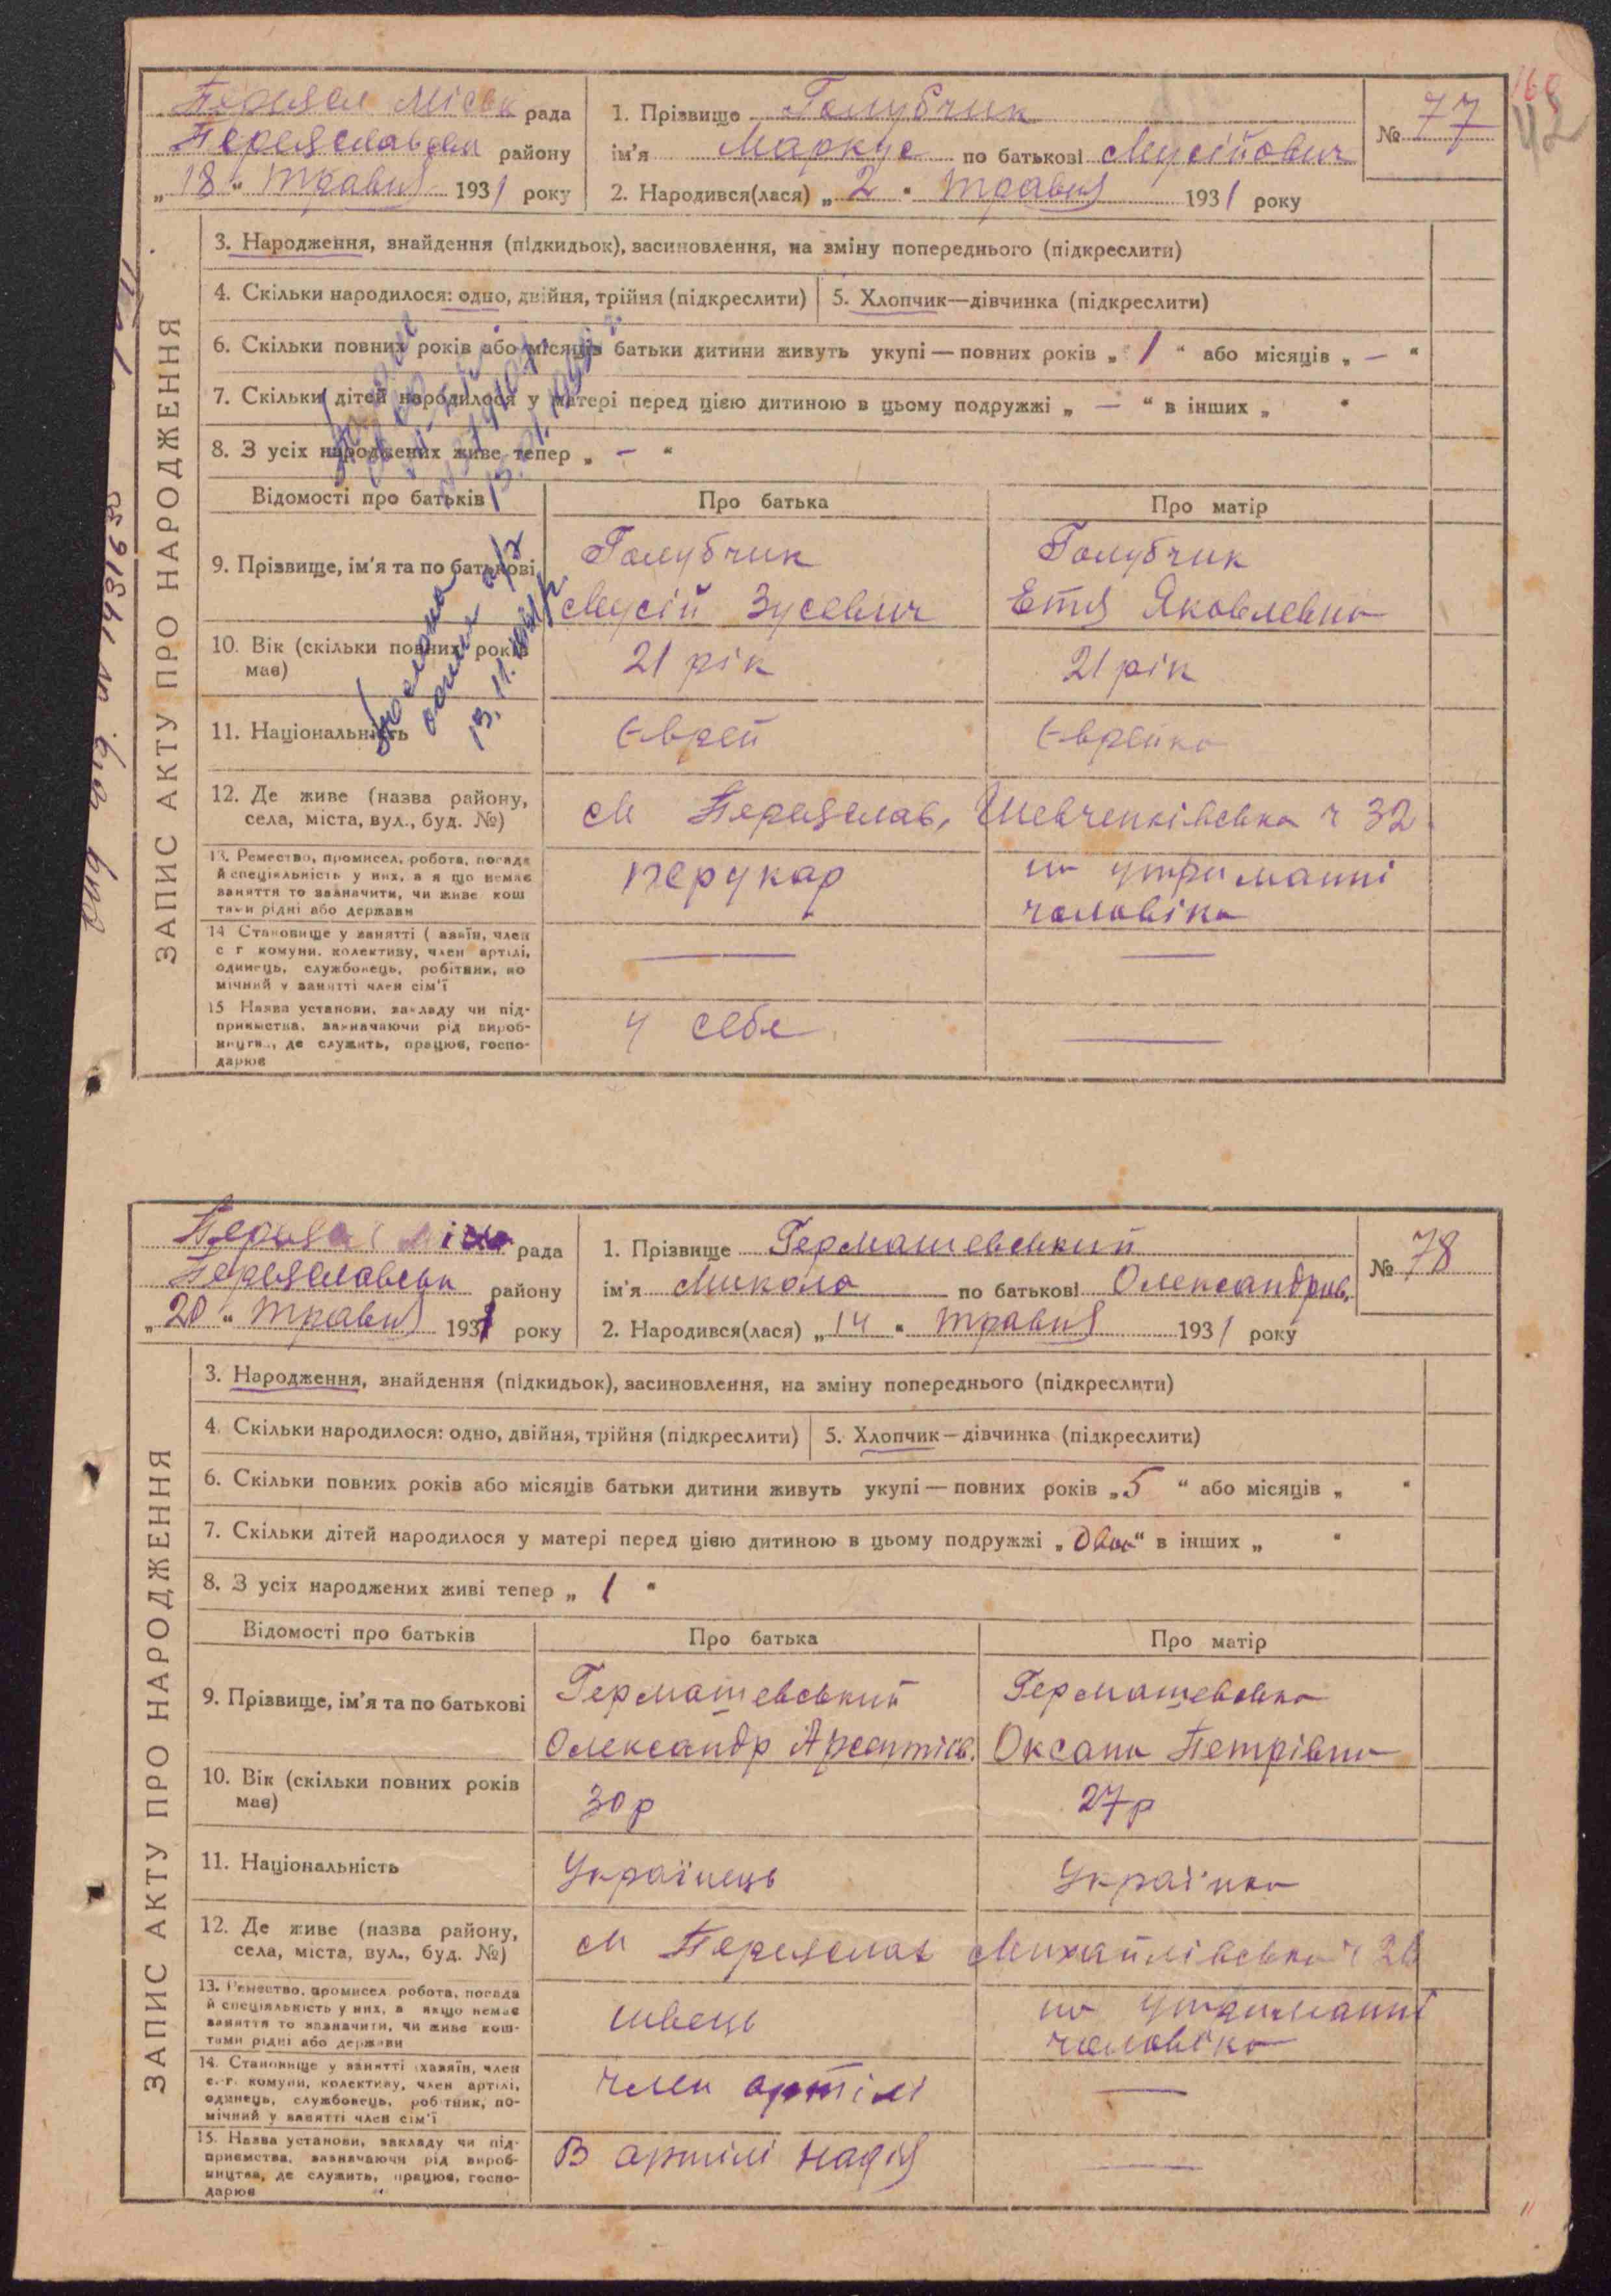 160
42
Переясл Міськ рада
Переяславськ району
„18“ травня 1931 року
1. Прізвище Голубчик
ім'я Маркус по батькові Мусійович
2. Народився(лася) „2“ травня 1931 року
№ 77
ЗАПИС АКТУ ПРО НАРОДЖЕННЯ
3. Народження, знайдення (підкидьок), засиновлення, на зміну попереднього (підкреслити)
4. Скільки народилося: одно, двійня, трійня (підкреслити)
5. Хлопчик—дівчинка (підкреслити)
6. Скільки повних років або місяців батьки дитини живуть укупі — повних років „1“ або місяців „—“
7. Скільки дітей народилося у матері перед цією дитиною в цьому подружжі „—“ в інших „ “
8. З усіх народжених живе тепер „—“
Відомості про батьків
Про батька
Про матір
9. Прізвище, ім'я та по батькові
Голубчик
Мусій Зусевич
Голубчик
Етя Яковлевна
10. Вік (скільки повних років
має)
21 рік
21 рік
11. Національність
Єврей
Єврейка
12. Де живе (назва району,
села, міста, вул., буд. №)
м Переяслав, Шевченківська ч 32
13. Ремество, промисел, робота, посада
й спеціяльність у них, а я що немає
заняття то зазначити, чи живе кош
тами рідні або держави
перукар
на утриманні
чоловіка
14 Становище у занятті ( азяїн, член
с г комуни, колективу, член артілі,
одинець, службовець, робітник, по
мічний у занятті член сім'ї
15 Назва установи, закладу чи під-
приємства, зазначаючи рід вироб-
ництва, де служить, працює, госпо-
дарює
у себе
13.11.
Переясл Міськ рада
Переяславськ району
„20“ травня 1931 року
1. Прізвище Гермашевський
ім'я Микола по батькові Олександров.
2. Народився(лася) „14“ травня 1931 року
№ 78
ЗАПИС АКТУ ПРО НАРОДЖЕННЯ
3. Народження, знайдення (підкидьок), засиновлення, на зміну попереднього (підкреслити)
4. Скільки народилося: одно, двійня, трійня (підкреслити)
5. Хлопчик—дівчинка (підкреслити)
6. Скільки повних років або місяців батьки дитини живуть укупі — повних років „5“ або місяців „ “
7. Скільки дітей народилося у матері перед цією дитиною в цьому подружжі „двоє“ в інших „ “
8. З усіх народжених живі тепер „1“
Відомості про батьків
Про батька
Про матір
9. Прізвище, ім'я та по батькові
Гермашевський
Олександр Арсентієв.
Гермашевська
Оксана Петрівна
10. Вік (скільки повних років
має)
30 р
27 р
11. Національність
Українець
Українка
12. Де живе (назва району,
села, міста, вул., буд. №)
м Переяслав Михайлівська ч
13. Ремество, промисел робота, посада
й спеціяльність у них, а якщо немає
заняття то зазначити, чи живе кош-
тами рідні або держави
швець
на утриманні
чоловіка
14. Становище у занятті хазяїн, член
с.-г. комуни, колективу, член артілі,
одинець, службовець, роб тник, по-
мічний у занятті член сім'ї
член артілі
15. Назва установи, закладу чи під-
приємства, зазначаючи рід вироб-
ництва, де служить, працює, госпо-
дарює
В артілі Надія